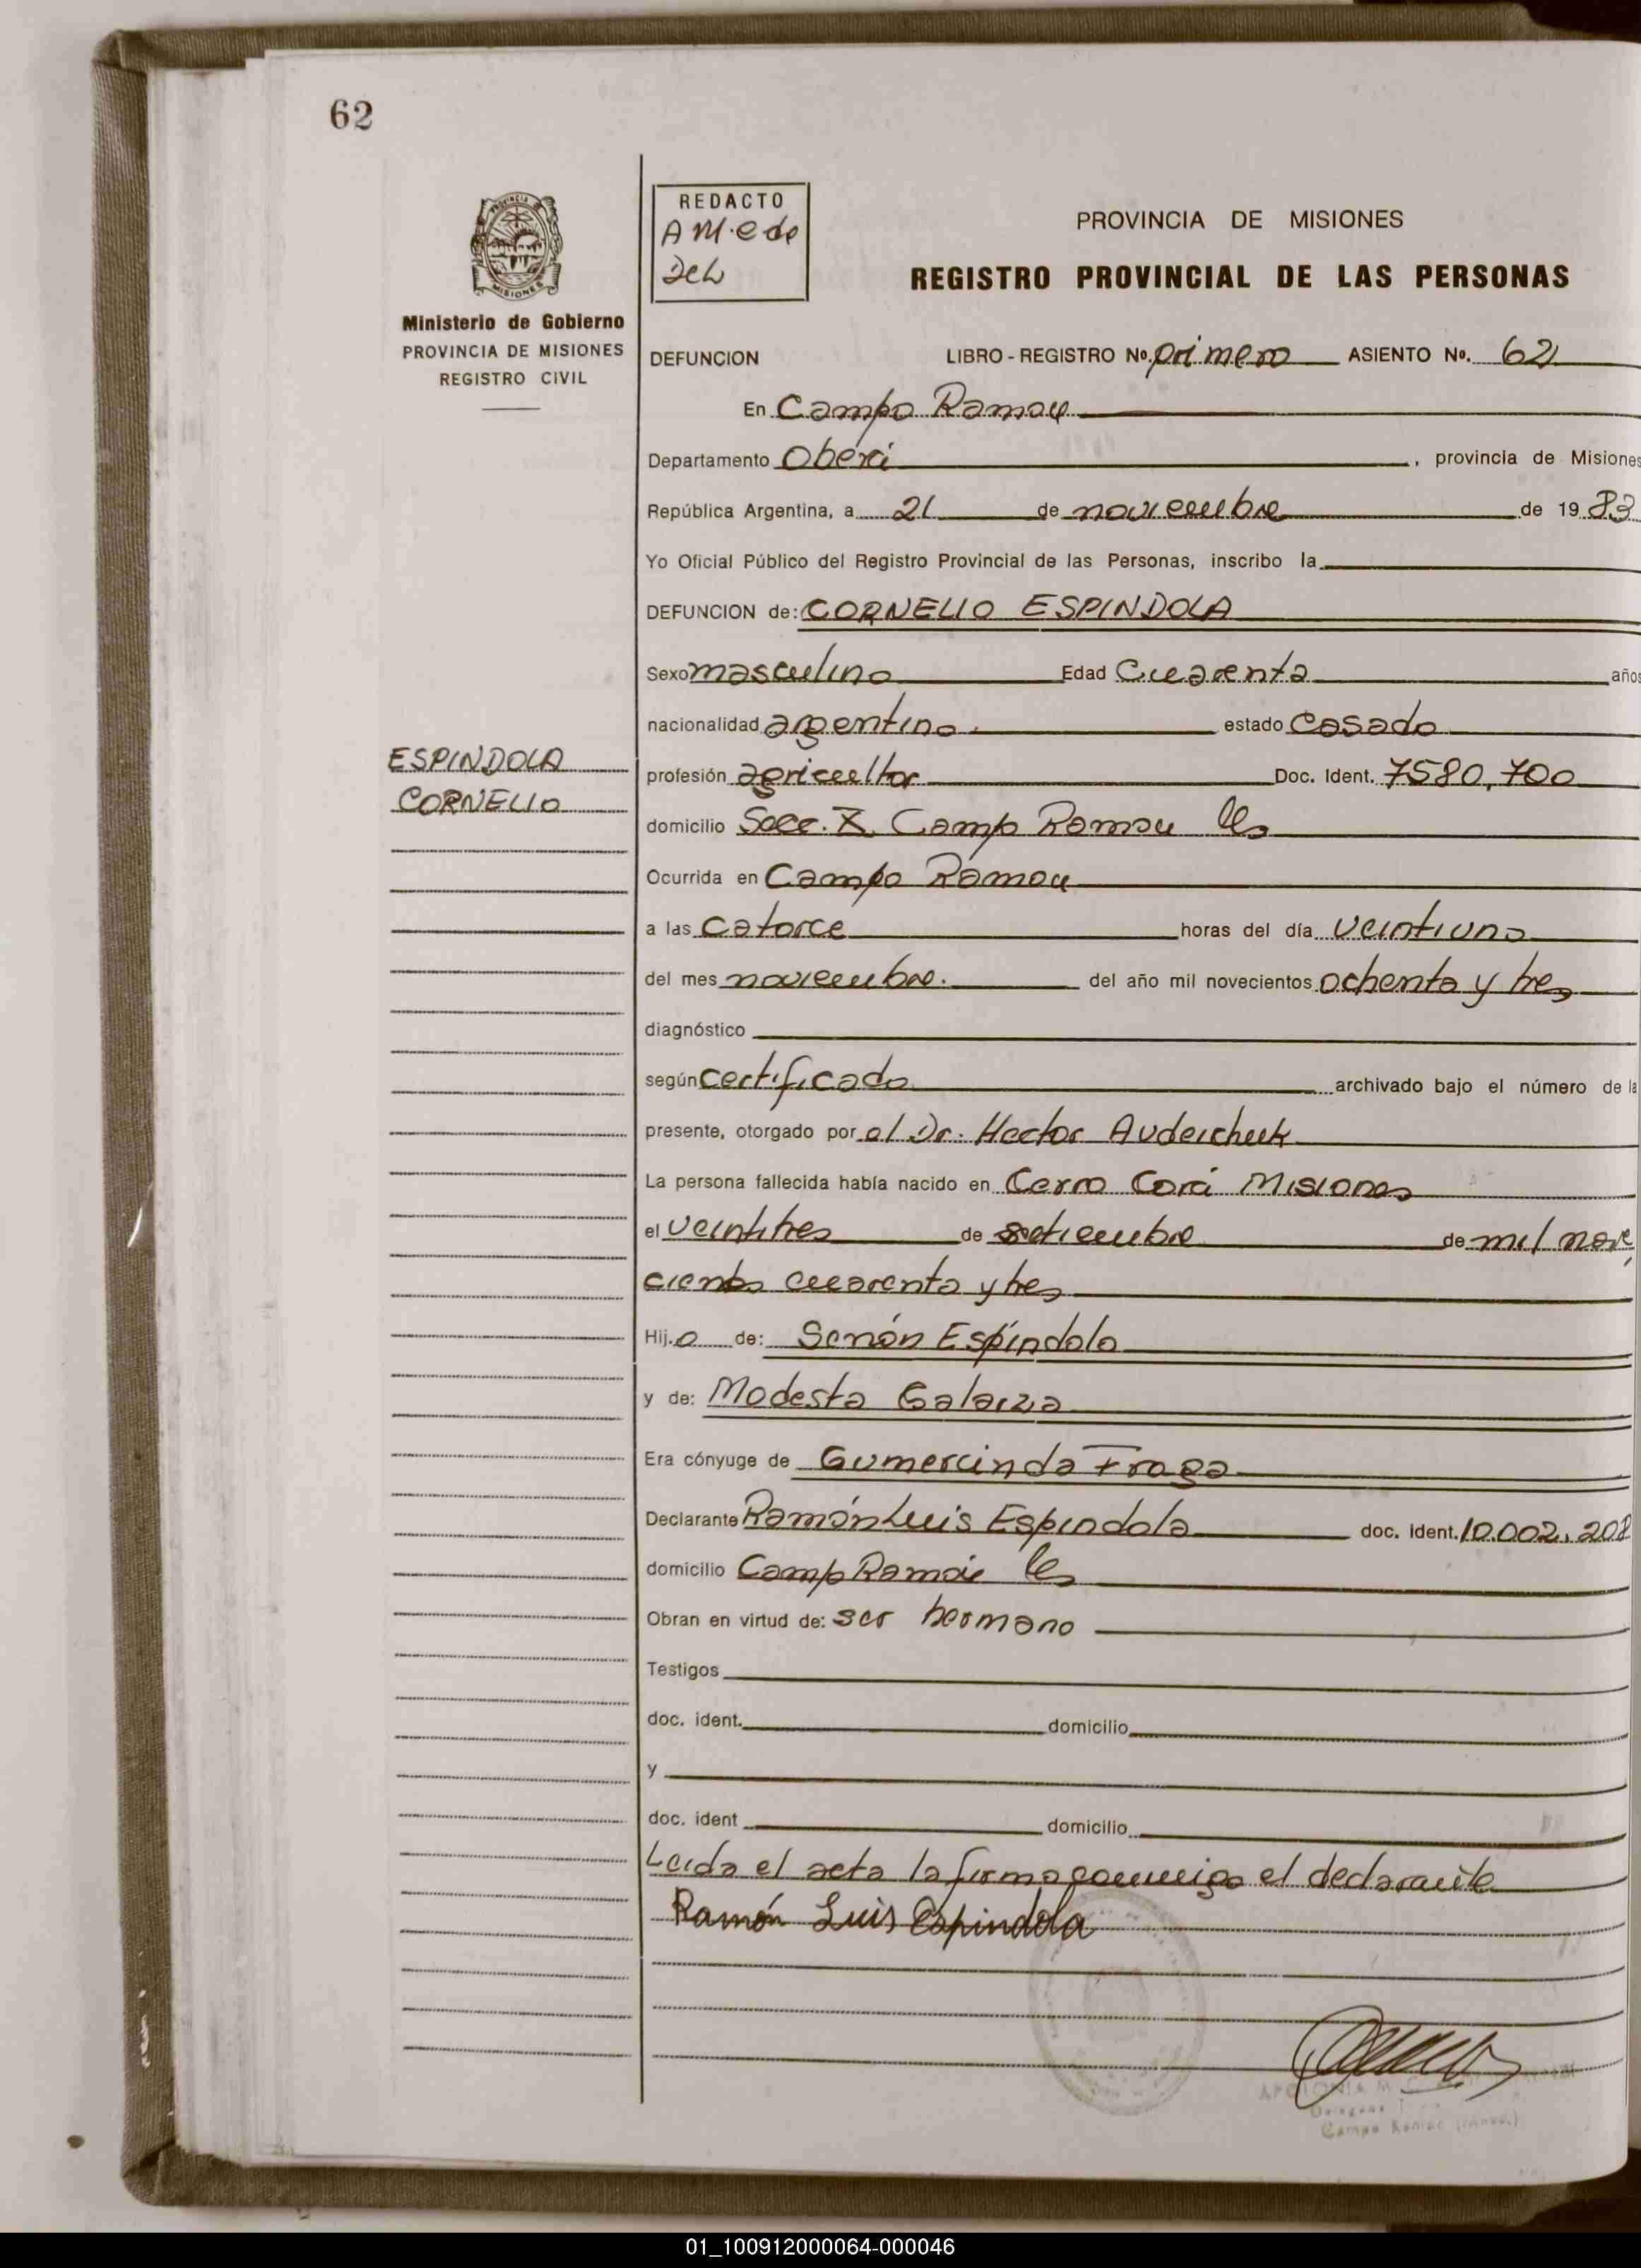 62
PROVINCIA DE
MISIONES
Ministerio de Gobierno
PROVINCIA DE MISIONES
REGISTRO CIVIL
REDACTO
AM.e de
Del
PROVINCIA DE MISIONES
REGISTRO PROVINCIAL DE LAS PERSONAS
DEFUNCION LIBRO - REGISTRO Nº. primero ASIENTO Nº. 62
En Campo Ramon
Departamento Oberá, provincia de Misiones
República Argentina, a 21 de noviembre de 19 83
Yo Oficial Público del Registro Provincial de las Personas, inscribo la
DEFUNCION de: CORNELIO ESPINDOLA
Sexo masculino Edad Cuarenta años
nacionalidad argentino. estado Casado
ESPINDOLA
CORNELIO
profesión agricultor Doc. Ident. 7580,700
domicilio Camp Ramon
Ocurrida en Campo Ramon
a las catorce horas del día veintiuno
del mes noviembre. del año mil novecientos ochenta y tres
diagnóstico
según certificado archivado bajo el número de la
presente, otorgado por el Dr. Hector
La persona fallecida había nacido en Cerro Corá Misiones
el veintitres de setiembre de mil nove
cientos cuarenta y tres
Hijo de: Senón Espíndola
y de: Modesta Galarza
Era cónyuge de Gumercinda Fraga
Declarante Ramón Luis Espindola doc. Ident. 10.002.208
domicilio Camp Ramón
Obran en virtud de: ser hermano
Testigos
doc. ident. domicilio
y
doc. ident domicilio
Leida el acta la firma conmigo el declarante
Ramón Luis Espindola
APOLONIA M.
Campo Ramón
01_100912000064-000046